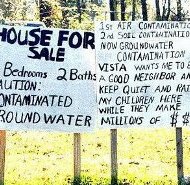 HOUSE FOR
SALE
Bedrooms 2 Baths
CAUTION:
CONTAMINATED
GROUNDWATER
1st AIR CONTAMINATION
2nd SOIL CONTAMINATION
NOW GROUNDWATER
CONTAMINATION
VISTA WANTS ME TO BE
A GOOD NEIGHBOR AND
KEEP QUIET AND RAISE
MY CHILDREN HERE
WHILE THEY MAKE
MILLIONS OF $ $